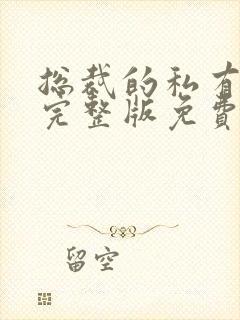 总裁的私有
完整版免費
留空